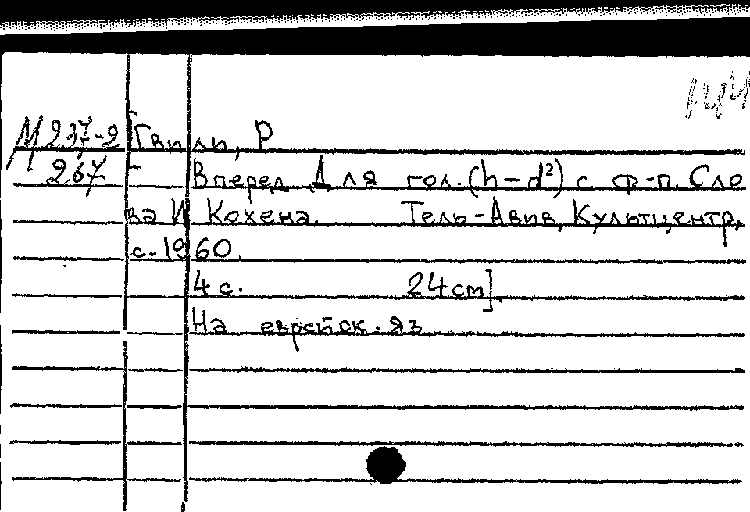 М 237-2 Гвиль, Р
267 Вперед. Для гол. (h-d²) с ф-п. Сло
ва И Кохена. Тель-Авив, Культцентр,
с. 1960.
4 с. 24 cm].
На еврейск. яз